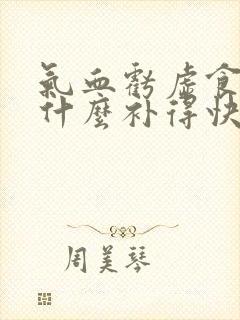 氣血虧虛食
什麼补得快
周美琴